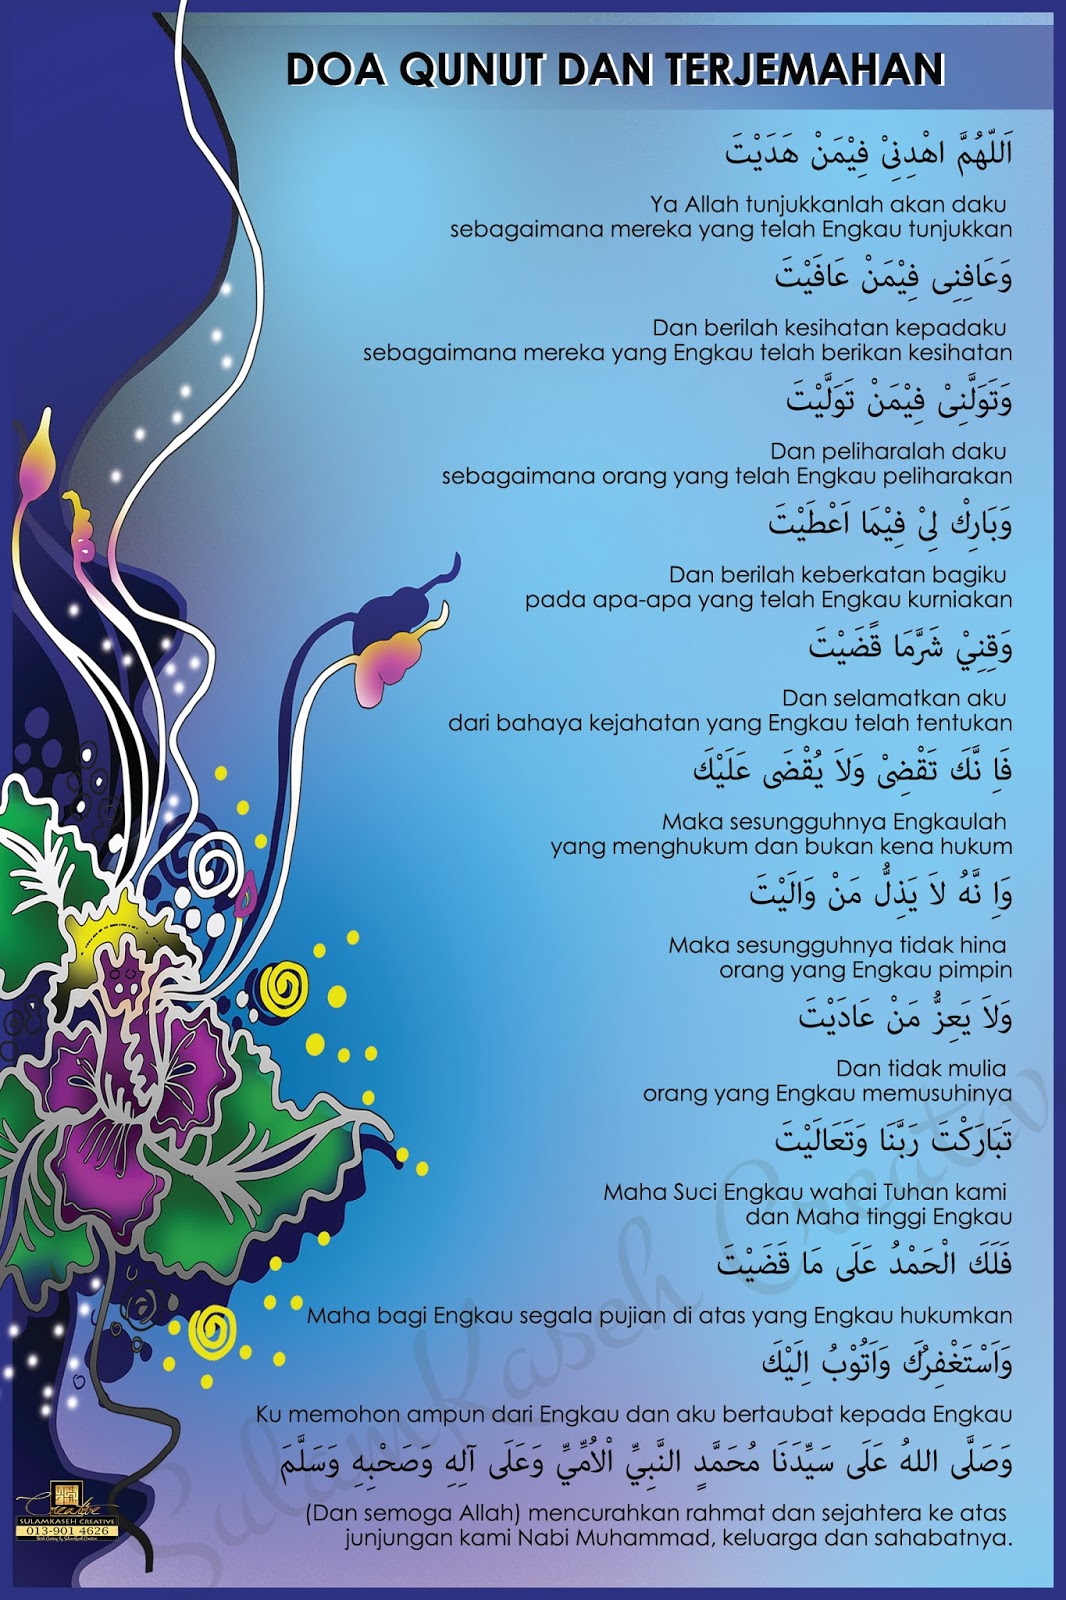 DOA QUNUT DAN TERJEMAHAN
اَللّهُمَّ اهْدِنِىْ فِيْمَنْ هَدَيْتَ
Ya Allah tunjukkanlah akan daku
sebagaimana mereka yang telah Engkau tunjukkan
وَعَافِنِى فِيْمَنْ عَافَيْتَ
Dan berilah kesihatan kepadaku
sebagaimana mereka yang Engkau telah berikan kesihatan
وَتَوَلَّنِىْ فِيْمَنْ تَوَلَّيْتَ
Dan peliharalah daku
sebagaimana orang yang telah Engkau peliharakan
وَبَارِكْ لِىْ فِيْمَا اَعْطَيْتَ
Dan berilah keberkatan bagiku
pada apa-apa yang telah Engkau kurniakan
وَقِنِيْ شَرَّمَا قًضَيْتَ
Dan selamatkan aku
dari bahaya kejahatan yang Engkau telah tentukan
فَاِ نَّكَ تَقْضِىْ وَلاَ يُقْضَى عَلَيْكَ
Maka sesungguhnya Engkaulah
yang menghukum dan bukan kena hukum
وَاِ نَّهُ لاَ يَذِلُّ مَنْ وَالَيْتَ
Maka sesungguhnya tidak hina
orang yang Engkau pimpin
وَلاَ يَعِزُّ مَنْ عَادَيْتَ
Dan tidak mulia
orang yang Engkau memusuhinya
تَبَارَكْتَ رَبَّنَا وَتَعَالَيْتَ
Maha Suci Engkau wahai Tuhan kami
dan Maha tinggi Engkau
فَلَكَ الْحَمْدُ عَلَى مَا قَضَيْتَ
Maha bagi Engkau segala pujian di atas yang Engkau hukumkan
وَاَسْتَغْفِرُكَ وَاَتُوْبُ اِلَيْكَ
Ku memohon ampun dari Engkau dan aku bertaubat kepada Engkau
وَصَلَّى اللهُ عَلَى سَيِّدَنَا مُحَمَّدٍ النَّبِيِّ اْلاُمِّيِّ وَعَلَى آلِهِ وَصَحْبِهِ وَسَلَّمَ
(Dan semoga Allah) mencurahkan rahmat dan sejahtera ke atas
junjungan kami Nabi Muhammad, keluarga dan sahabatnya.
Creative
SULAMKASEH CREATIVE
013-901 4626
SulamKaseh Creativ